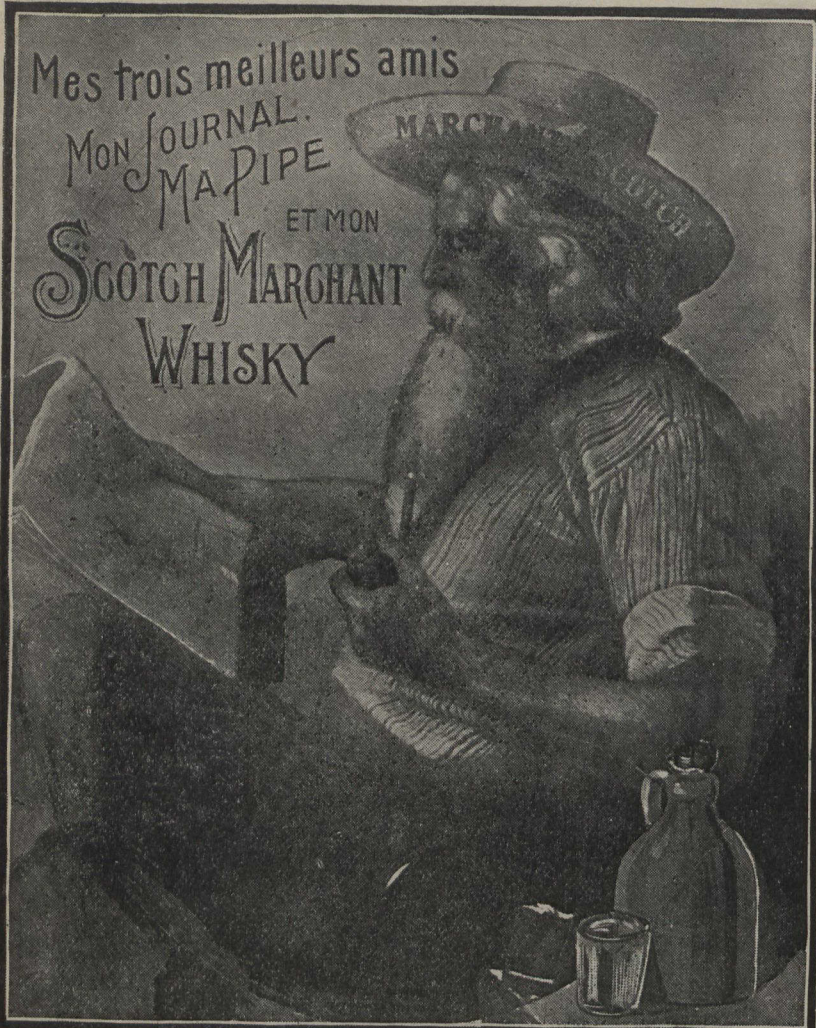 Mes trois meilleurs amis
MON JOURNAL.
MA PIPE
ET MON
SCOTCH MARCHANT
WHISKY
MARCHANT SCOTCH